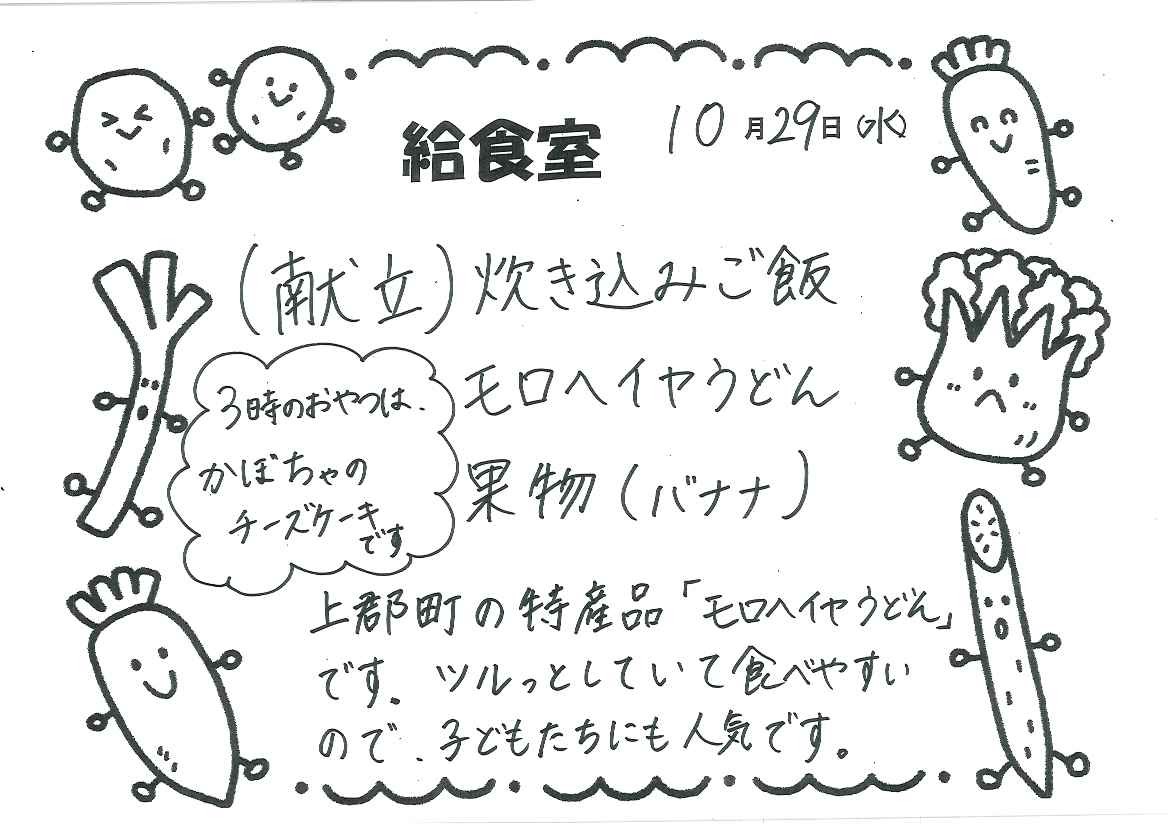 給食室 10月29日(水)
(献立)炊き込みご飯
モロヘイヤうどん
果物(バナナ)
3時のおやつは、
かぼちゃの
チーズケーキ
です
上郡町の特産品「モロヘイヤうどん」
です。ツルっとしていて食べやすい
ので、子どもたちにも人気です。